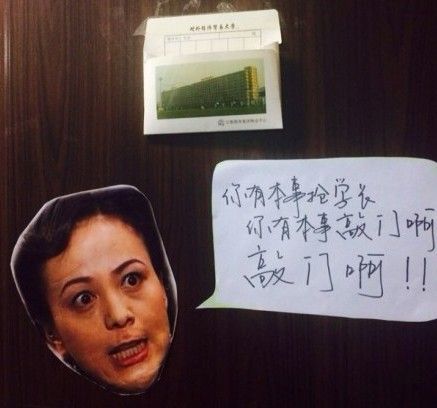 对外经济贸易大学
你有本事抢学长
你有本事敲门啊
敲门啊!!